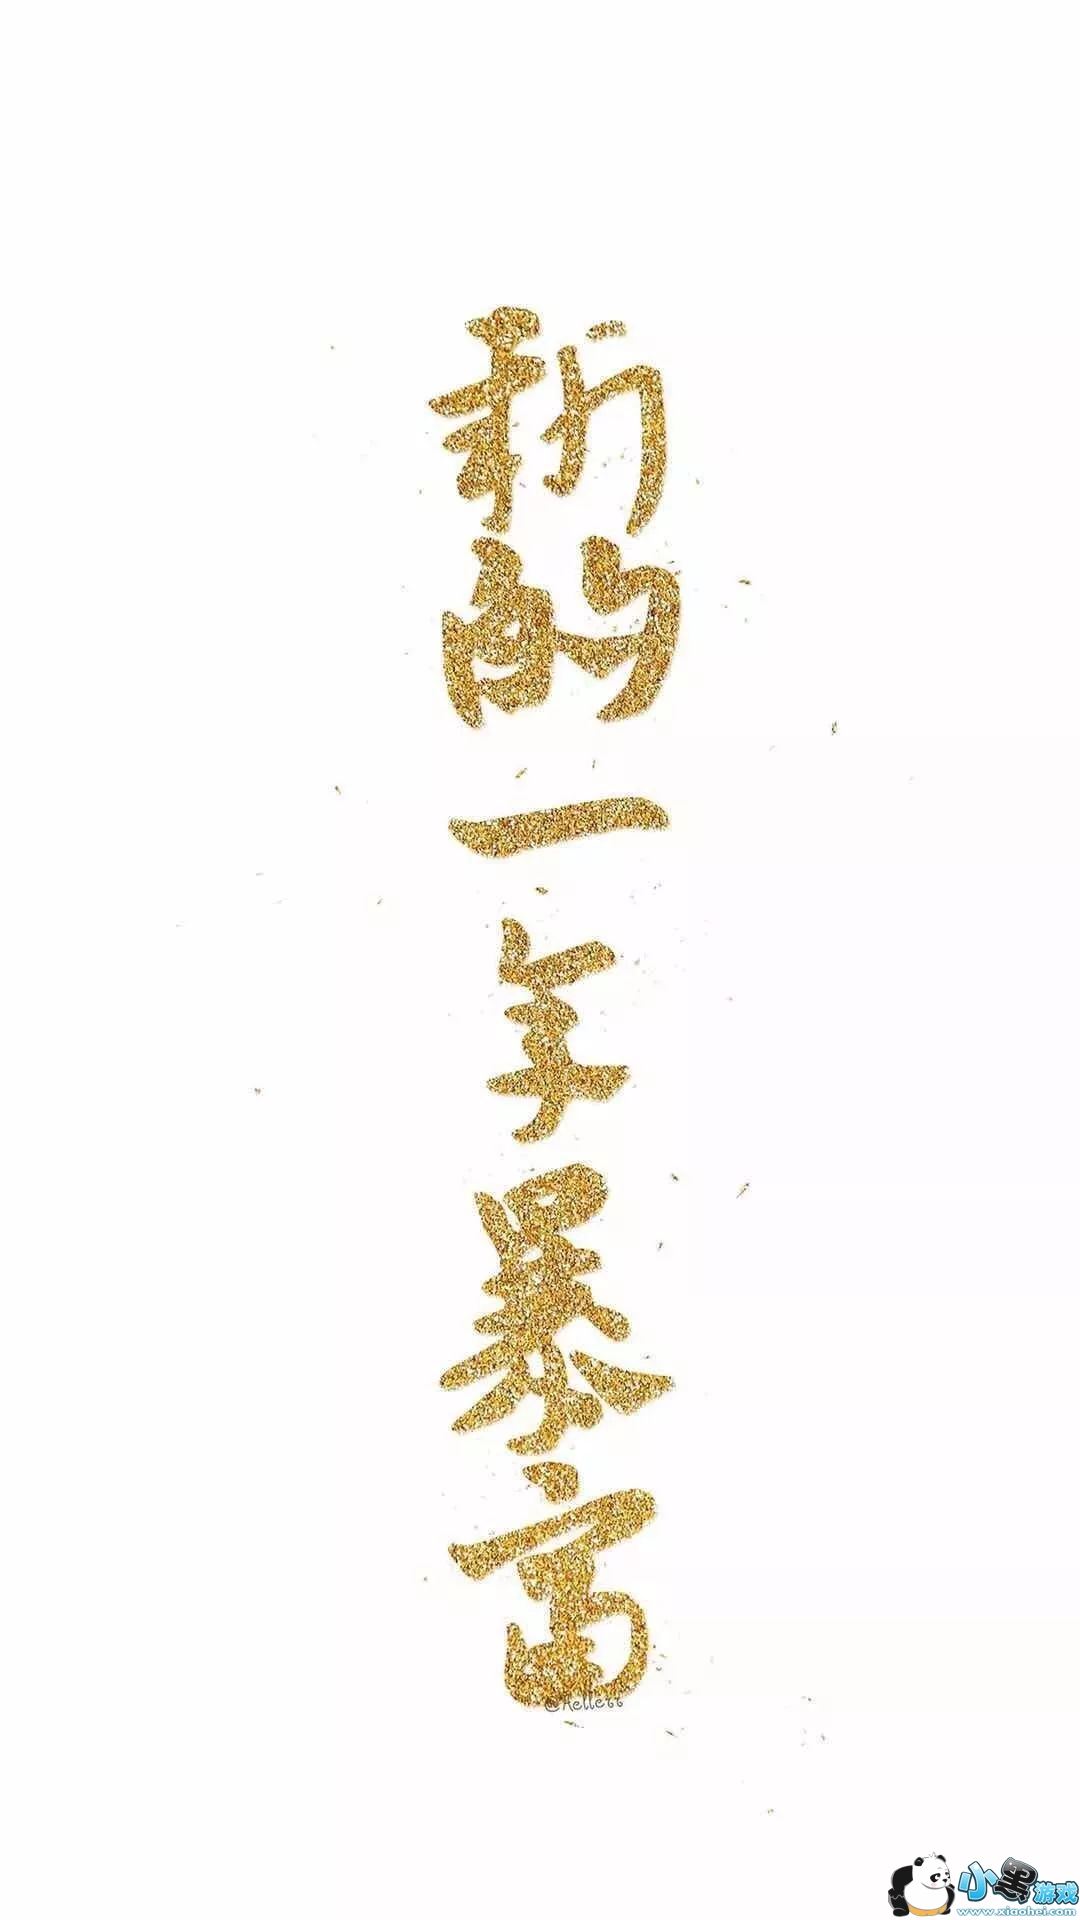 新的一年暴富
@Hellerr
小黑游戏
www.xiaohei.com